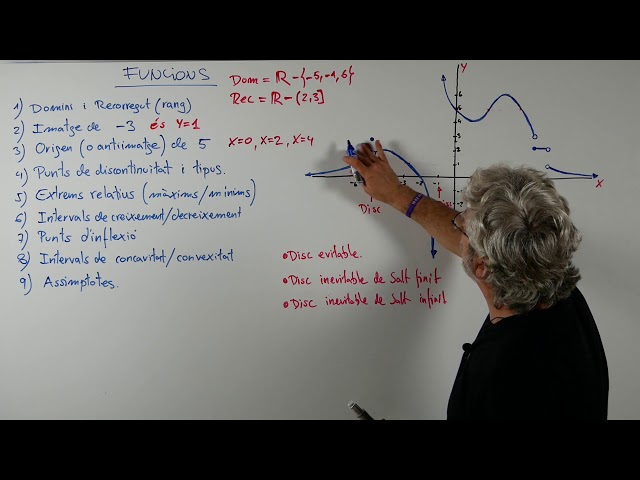 FUNCIONS
Dom = ℝ - {-5,-1,6}
Rec = ℝ - (2,3]
1) Domini i Recorregut (rang)
2) Imatge de -3 és Y=1
3) Origen (o antiimatge) de 5 X=0, X=2, X=4
4) Punts de discontinuïtat i tipus.
5) Extrems relatius (màxims/mínims)
6) Intervals de creixement/decreixement
7) Punts d'inflexió
8) Intervals de concavitat/convexitat
9) Assímptotes.
Y
X
Disc
• Disc evitable.
• Disc inevitable de Salt finit
• Disc inevitable de Salt infinit